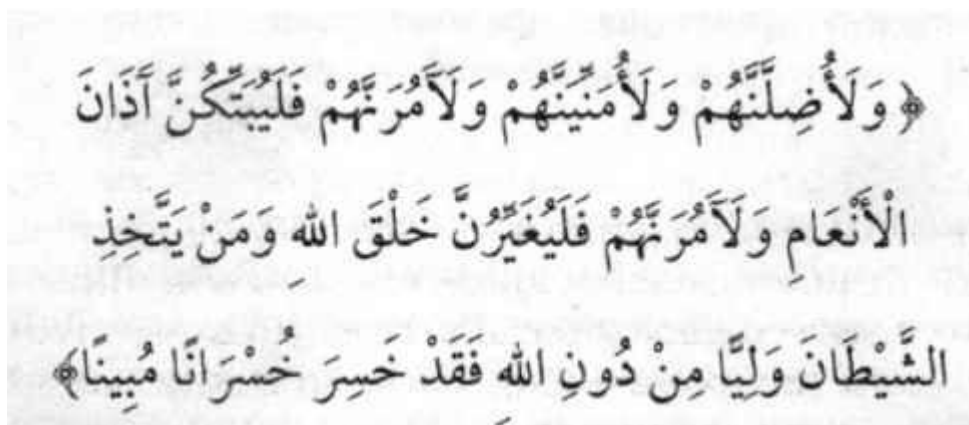 ﴿ وَلَأُضِلَّنَّهُمْ وَلَأُمَنِّيَنَّهُمْ وَلَآمُرَنَّهُمْ فَلَيُبَتِّكُنَّ آذَانَ
الْأَنْعَامِ وَلَآمُرَنَّهُمْ فَلَيُغَيِّرُنَّ خَلْقَ اللهِ وَمَنْ يَتَّخِذِ
الشَّيْطَانَ وَلِيًّا مِنْ دُونِ اللهِ فَقَدْ خَسِرَ خُسْرَانًا مُبِينًا﴾